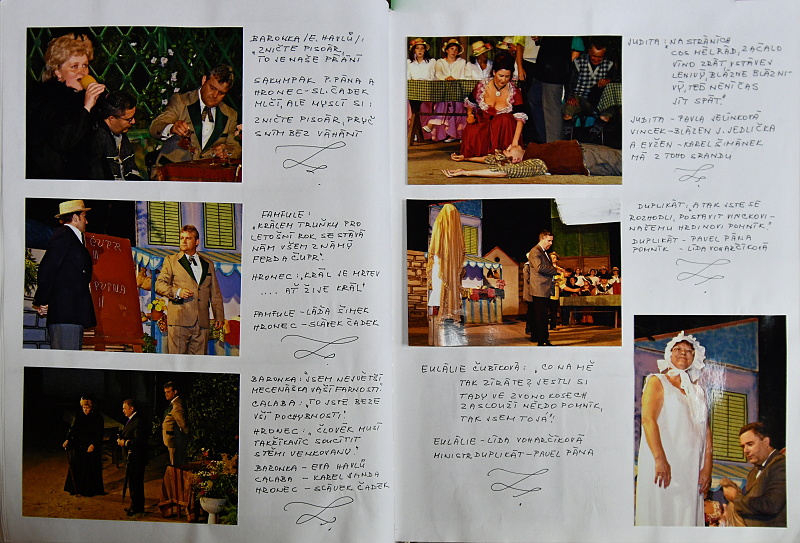 BARONKA /E. HAVLŮ/:
"ZNIČTE PISOÁR,
TO JE NAŠE PŘÁNÍ
SAKUMPAK P. PÁNA A
HRONEC-SL. ČADEK
MLČÍ, ALE MYSLÍ SI:
ZNIČTE PISOÁR, PRYČ
S NÍM BEZ VÁHÁNÍ
FAMFULE:
"KRÁLEM TRUŇKY PRO
LETOŠNÍ ROK SE STÁVÁ
NÁM VŠEM ZNÁMÝ
FERDA ČUPR."
HRONEC: "KRÁL JE MRTEV
.... AŤ ŽIJE KRÁL!
FAMFULE - LÁĎA ŠIMEK
HRONEC - SLÁVEK ČADEK
ČUPR
PUTNA
BARONKA: "JSEM NEJVĚTŠÍ
MECENÁŠKA VAŠÍ FARNOSTI."
CALABA: "TO JSTE BEZE
VŠÍ POCHYBNOSTI."
HRONEC: "ČLOVĚK MUSÍ
TAKŘÍKAJÍC SOUCÍTIT
S TĚMI VENKOVANY."
BARONKA - EVA HAVLŮ
CALABA - KAREL ŠANDA
HRONEC - SLÁVEK ČADEK
JUDITA: "NA STRÁNÍCH
COS MĚL RÁD, ZAČALO
VÍNO ZRÁT, VSTÁVEJ
LENIVÝ, BLÁZNE BLÁZNI-
VÝ, TEĎ NENÍ ČAS
JÍT SPÁT."
JUDITA - PAVLA JELÍNKOVÁ
VINCEK - BLÁZEN J. JEDLIČKA
A EVŽEN - KAREL ŠIMÁNEK
MÁ Z TOHO SRANDU
DUPLIKÁT: "A TAK JSTE SE
ROZHODLI, POSTAVIT VINCKOVI -
NAŠEMU HRDINOVI POMNÍK"
DUPLIKÁT - PAVEL PÁNA
POMNÍK - LÍDA VOHARČÍKOVÁ
EULÁLIE ČUBÍKOVÁ: "CO NA MĚ
TAK ZÍRÁTE? JESTLI SI
TADY VE ZVONOKOSECH
ZASLOUŽÍ NĚKDO POMNÍK,
TAK JSEM TO JÁ"!
EULÁLIE - LÍDA VOHARČÍKOVÁ
MINISTR DUPLIKÁT - PAVEL PÁNA